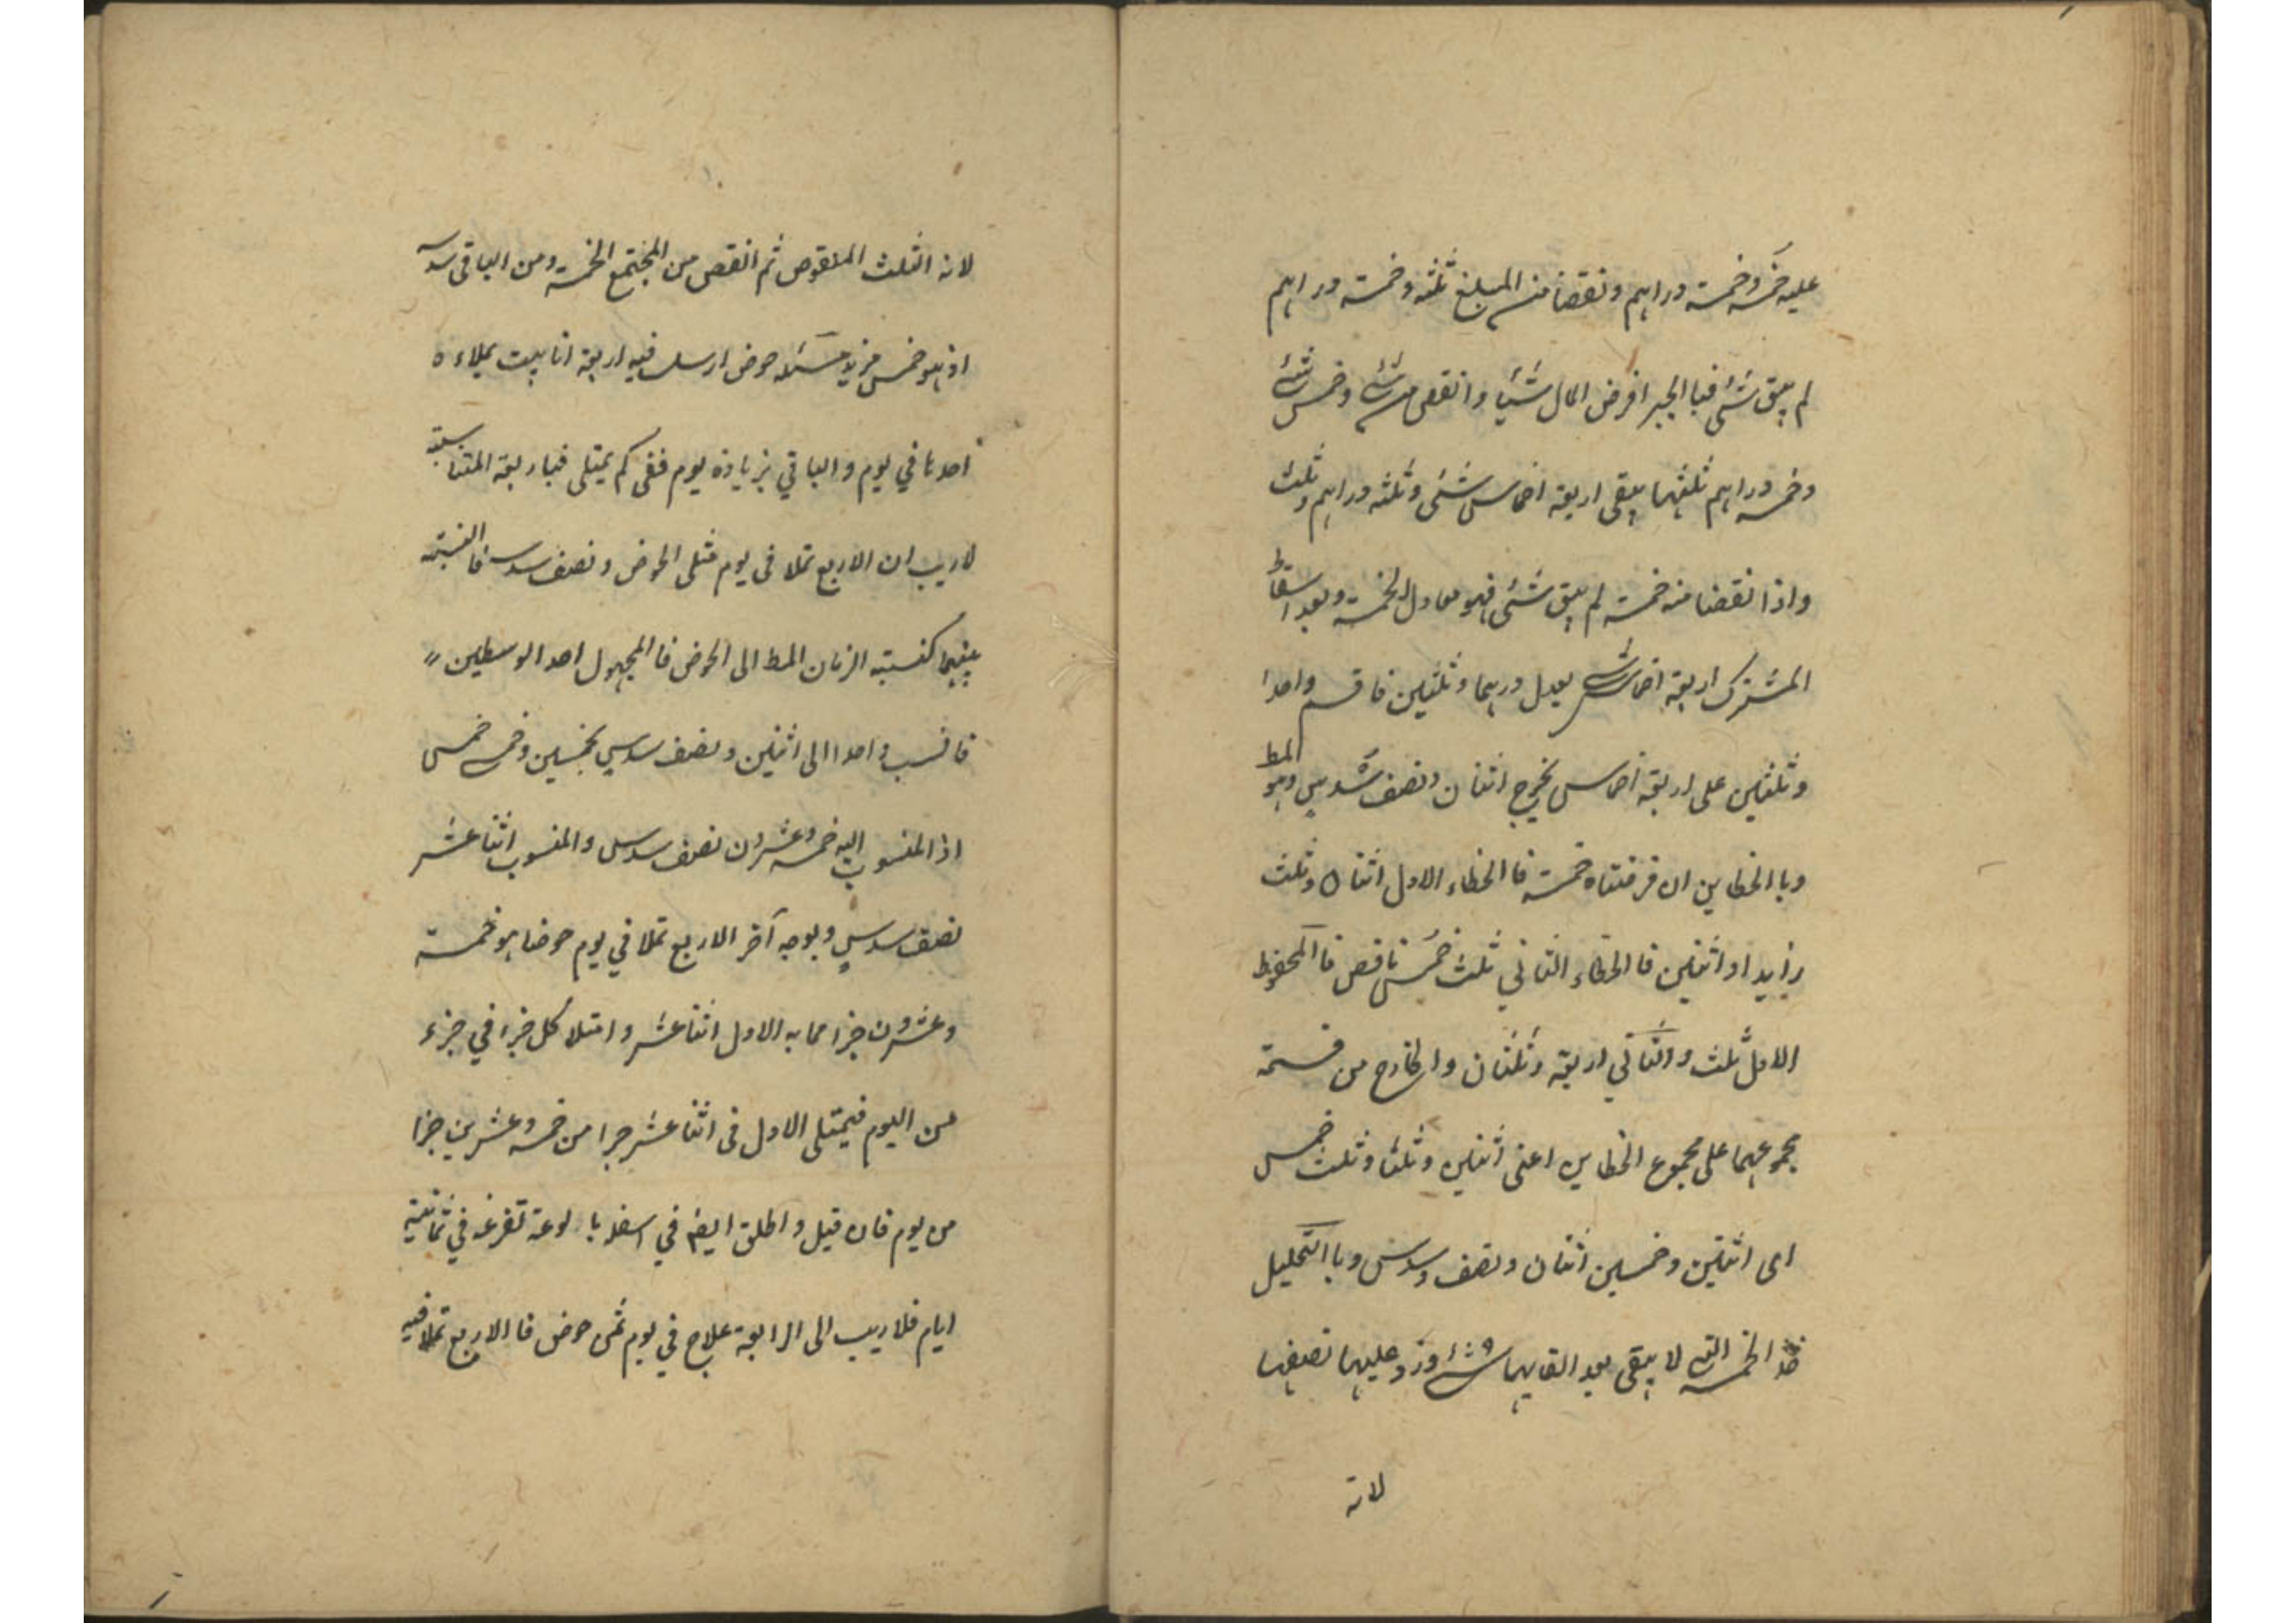 عليه خمسه وخمسة دراهم ونقصنا من المبلغ ثلثه وخمسة دراهم
لم يبق شئ فبا الجبر افرض المال شيا وانقص من شئ وخمس شئ
وخمسه دراهم ثلثهما يبقى اربعة اخماس شئ وثلثه دراهم وثلث
واذا نقصنا منه خمسة لم يبق شئ فهو معادل الخمسة وبعد اسقاط
المشترك اربعة اخماس شئ يعدل درهما وثلثين فاقسم واحدا
وثلثين على اربعة اخماس يخرج اثنان ونصف سدس وهو المط
وبا الخطاين ان فرضناه خمسة فا الخطاء الاول اثنان وثلث
زايد او اثنين فا الخطاء الثاني ثلث خمس ناقص فا المحفوظ
الاول ثلث والثاني اربعة وثلثان والخارج من قسمة
مجموعهما على مجموع الخطاين اعنى اثنين وثلثا وثلث خمس
اى اثنين وخمسين اثنان ونصف وسدس وبا التحليل
خذ الخمسة التي لا يبقى بعد القايها شئ وزد عليها نصفها
لانه
لانه الثلث المنقوص ثم انقص من المجتمع الخمسة ومن الباقى سدسه
اذ هو خمس مزيد مسئله حوض ارسل فيه اربعة انابيب يملاءه
احدها في يوم والباقي بزيادة يوم ففى كم يمتلى فبا ربعة المتناسبة
لاريب ان الاربع تملا فى يوم مثلى الحوض ونصف سدسه فا النسبته
بينهما كنسبته الزمان المط الى الحوض فا المجهول احد الوسطين
فانسب واحدا الى اثنين ونصف سدس بخمسين وخمس خمس
اذ المنسوب اليه خمسه وعشرون نصف سدس والمنسوب اثنا عشر
نصف سدس وبوجه آخر الاربع تملا في يوم حوضا هو خمسة
وعشرون جزا مما به الاول اثنا عشر وامتلا كل جزء في جزء
من اليوم فيمتلى الاول فى اثنا عشر جزا من خمسه وعشرين جزا
من يوم فان قيل واطلق ايضا في اسفله با لوعة تفرغه في ثمانية
ايام فلاريب الى الرابعة علاج في يوم ثمن حوض فا الاربع تملا فيه